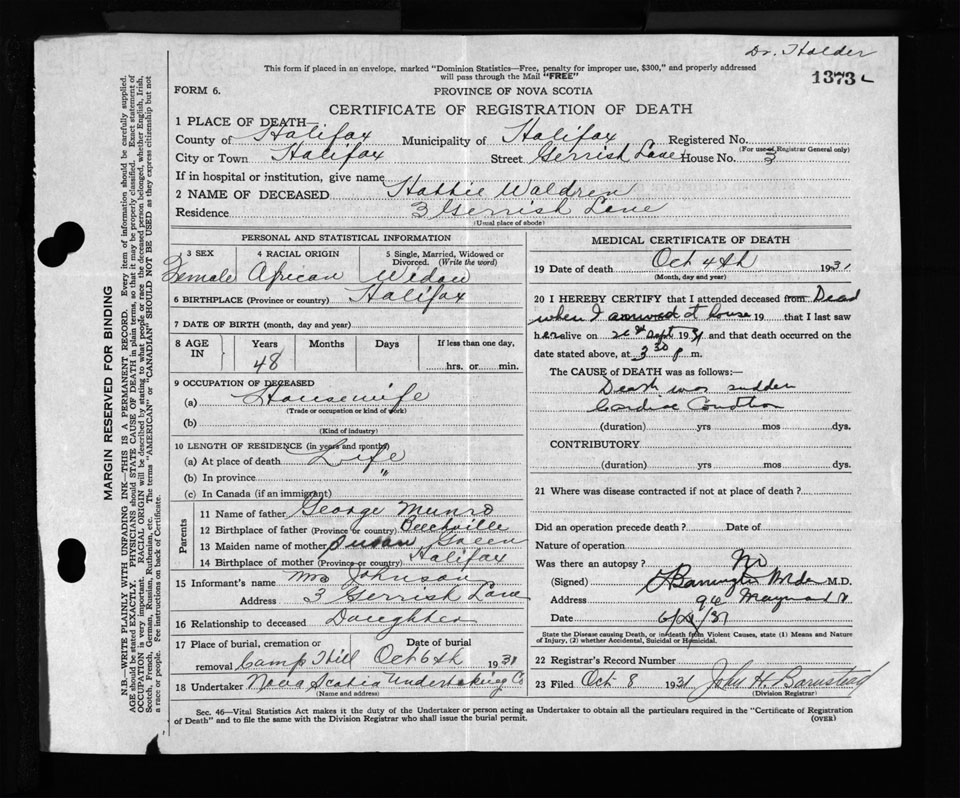 Dr. Holder
This form if placed in an envelope, marked "Dominion Statistics—Free, penalty for improper use, $300," and properly addressed
will pass through the Mail "FREE"
1373
FORM 6.
PROVINCE OF NOVA SCOTIA
CERTIFICATE OF REGISTRATION OF DEATH
1 PLACE OF DEATH
County of Halifax Municipality of Halifax Registered No.
(For use of Registrar General only)
City or Town Halifax Street Gerrish Lane House No. 3
If in hospital or institution, give name
2 NAME OF DECEASED Hattie Waldren
Residence 3 Gerrish Lane
(Usual place of abode)
PERSONAL AND STATISTICAL INFORMATION
3 SEX 4 RACIAL ORIGIN 5 Single, Married, Widowed or Divorced. (Write the word)
Female African Widow
6 BIRTHPLACE (Province or country) Halifax
7 DATE OF BIRTH (month, day and year)
8 AGE IN Years Months Days If less than one day,
48 hrs. or min.
9 OCCUPATION OF DECEASED
(a) Housewife
(Trade or occupation or kind of work)
(b)
(Kind of industry)
10 LENGTH OF RESIDENCE (in years and months)
(a) At place of death Life
(b) In province "
(c) In Canada (if an immigrant)
Parents
11 Name of father George Munro
12 Birthplace of father (Province or country) Beechville
13 Maiden name of mother Susan Green
14 Birthplace of mother (Province or country) Halifax
15 Informant's name Mrs Johnson
Address 3 Gerrish Lane
16 Relationship to deceased Daughter
17 Place of burial, cremation or removal Camp Hill Date of burial Oct 6th 1931
18 Undertaker Nova Scotia Undertaking Co
(Name and address)
MEDICAL CERTIFICATE OF DEATH
19 Date of death Oct 4th 1931
(Month, day and year)
20 I HEREBY CERTIFY that I attended deceased from Dead
when I arrived at house 19 that I last saw
her alive on Sept 1931 and that death occurred on
date stated above, at 3 30 p m.
The CAUSE of DEATH was as follows:
Death was sudden
Cardiac Condition
(duration) yrs mos dys.
CONTRIBUTORY
(duration) yrs mos dys.
21 Where was disease contracted if not at place of death?
Did an operation precede death? Date of
Nature of operation
Was there an autopsy? No
(Signed) M.D.
Address Maynard
Date
State the Disease causing Death, or in death from Violent Causes, state (1) Means and Nature
of Injury, (2) whether Accidental, Suicidal or Homicidal.
22 Registrar's Record Number
23 Filed Oct 8 1931 John H. Barnstead
(Division Registrar)
Sec. 46—Vital Statistics Act makes it the duty of the Undertaker or person acting as Undertaker to obtain all the particulars required in the "Certificate of Registration
of Death" and to file the same with the Division Registrar who shall issue the burial permit.
(OVER)
MARGIN RESERVED FOR BINDING
N.B.—WRITE PLAINLY WITH UNFADING INK—THIS IS A PERMANENT RECORD. Every item of information should be carefully supplied.
AGE should be stated EXACTLY. PHYSICIANS should STATE CAUSE OF DEATH in plain terms, so that it may be properly classified. Exact statement of
OCCUPATION is very important. RACIAL ORIGIN will be described by stating to what people or race the deceased person belonged, whether English, Irish,
Scotch, French, German, Russian, Ruthenian, etc. The terms "AMERICAN" or "CANADIAN" SHOULD NOT BE USED as they express citizenship but not
a race or people. See instructions on back of Certificate.